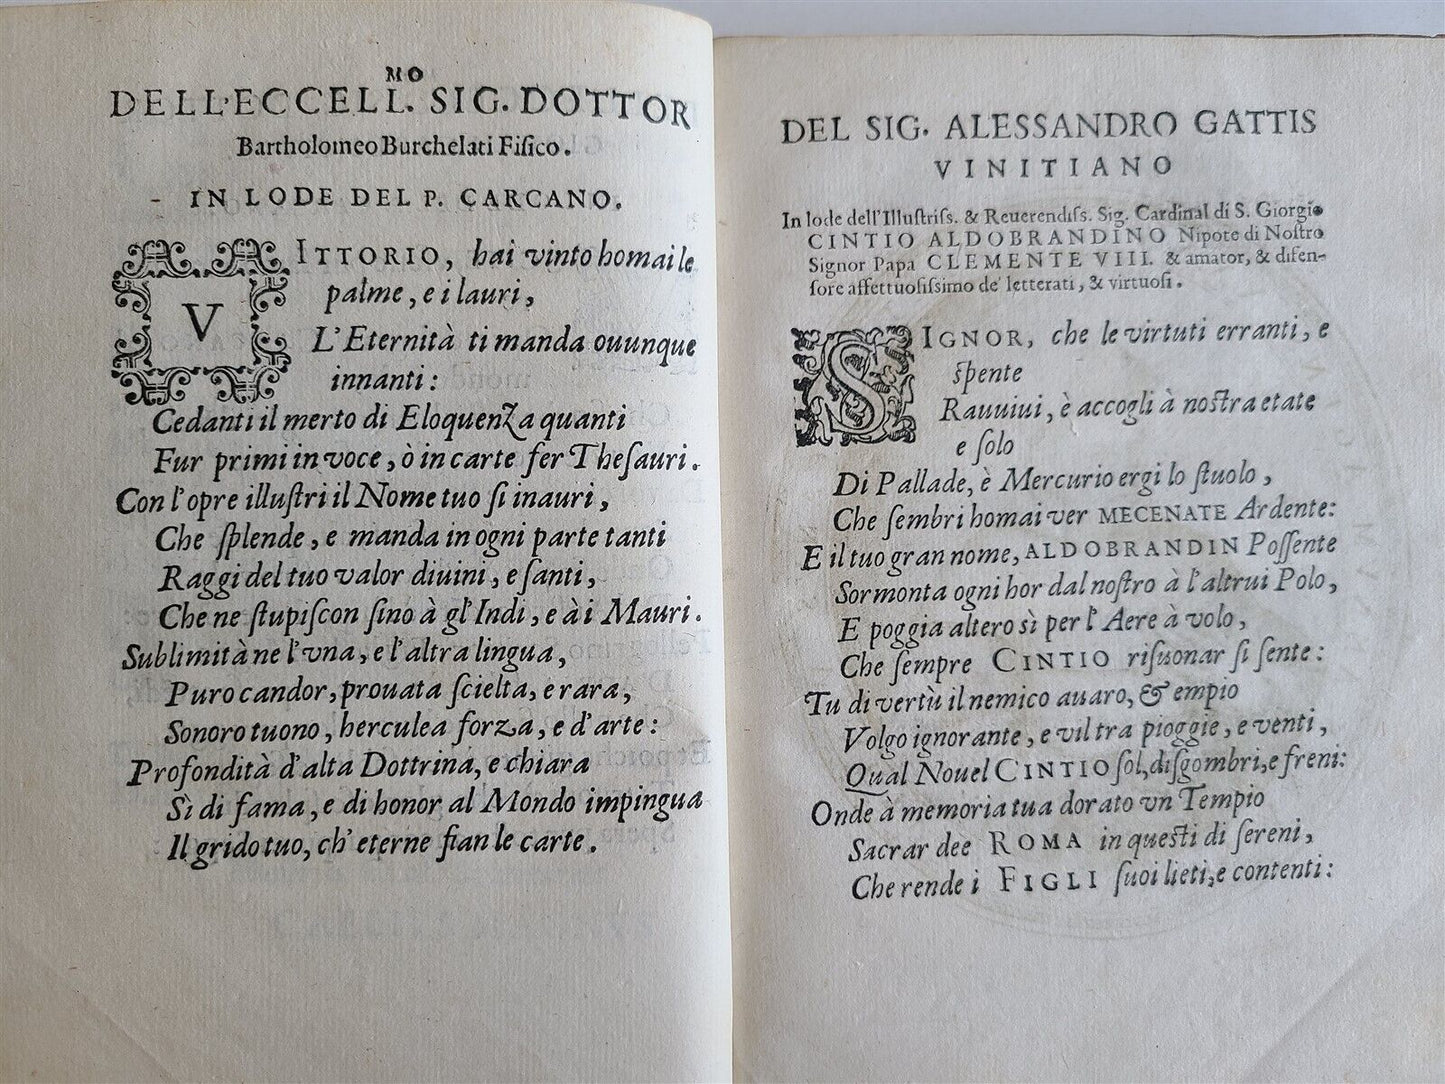 MO
DELL'ECCELL. SIG. DOTTOR
Bartholomeo Burchelati Fiſico.
IN LODE DEL P. CARCANO.
VITTORIO, hai vinto homai le
palme, e i lauri,
L'Eternità ti manda ouunque
innanti:
Cedanti il merto di Eloquenza quanti
Fur primi in voce, ò in carte fer Theſauri.
Con l'opre illuſtri il Nome tuo ſi inauri,
Che ſplende, e manda in ogni parte tanti
Raggi del tuo valor diuini, e ſanti,
Che ne ſtupiſcon ſino à gl'Indi, e à i Mauri.
Sublimità ne l'vna, e l'altra lingua,
Puro candor, prouata ſcielta, e rara,
Sonoro tuono, herculea forza, e d'arte:
Profondità d'alta Dottrina, e chiara
Sì di fama, e di honor al Mondo impingua
Il grido tuo, ch'eterne fian le carte.
DEL SIG. ALESSANDRO GATTIS
VINITIANO
In lode dell'Illuſtriſs. & Reuerendiſs. Sig. Cardinal di S. Giorgio
CINTIO ALDOBRANDINO Nipote di Noſtro
Signor Papa CLEMENTE VIII. & amator, & difen-
ſore affettuoſiſsimo de' letterati, & virtuoſi.
SIGNOR, che le virtuti erranti, e
ſpente
Rauuiui, è accogli à noſtra etate
e ſolo
Di Pallade, è Mercurio ergi lo ſtuolo,
Che ſembri homai ver MECENATE Ardente:
E il tuo gran nome, ALDOBRANDIN Poſſente
Sormonta ogni hor dal noſtro à l'altrui Polo,
E poggia altero sì per l'Aere à volo,
Che ſempre CINTIO riſuonar ſi ſente:
Tu di vertù il nemico auaro, & empio
Volgo ignorante, e vil tra pioggie, e venti,
Qual Nouel CINTIO ſol, diſgombri, e freni:
Onde à memoria tua dorato vn Tempio
Sacrar dee ROMA in queſti dì ſereni,
Che rende i FIGLI ſuoi lieti, e contenti: